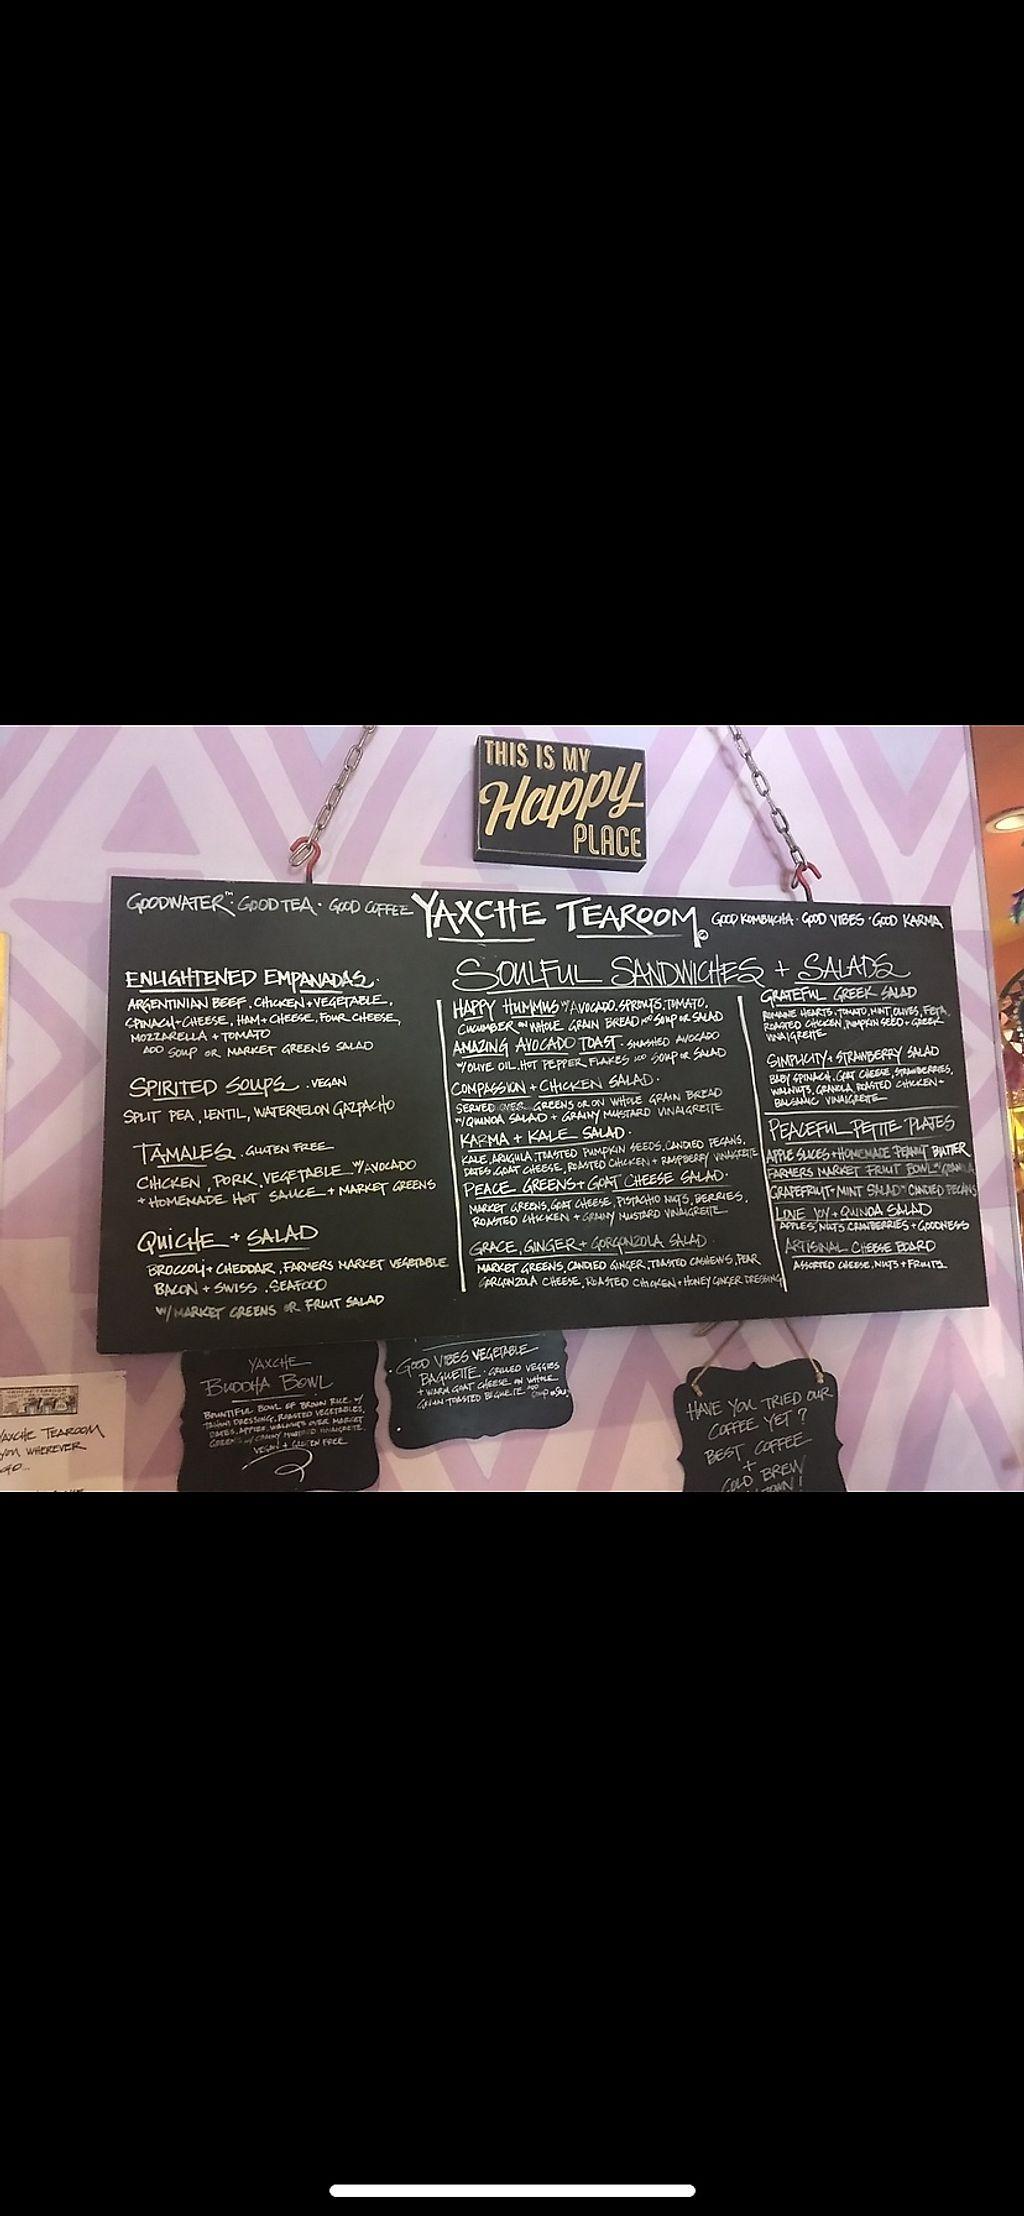 THIS IS MY
Happy
PLACE
GOODWATER™ · GOOD TEA · GOOD COFFEE YAXCHE TEAROOM © GOOD KOMBUCHA · GOOD VIBES · GOOD KARMA
ENLIGHTENED EMPANADAS.
ARGENTINIAN BEEF, CHICKEN + VEGETABLE,
SPINACH + CHEESE, HAM + CHEESE, FOUR CHEESE,
MOZZARELLA + TOMATO
ADD SOUP OR MARKET GREENS SALAD
SPIRITED SOUPS . VEGAN
SPLIT PEA, LENTIL, WATERMELON GAZPACHO
TAMALES . GLUTEN FREE
CHICKEN, PORK, VEGETABLE W/ AVOCADO
+ HOMEMADE HOT SAUCE + MARKET GREENS
QUICHE + SALAD
BROCCOLI + CHEDDAR, FARMERS MARKET VEGETABLE
BACON + SWISS, SEAFOOD
W/ MARKET GREENS OR FRUIT SALAD
SOULFUL SANDWICHES + SALADS
HAPPY HUMMUS W/ AVOCADO, SPROUTS, TOMATO,
CUCUMBER ON WHOLE GRAIN BREAD ADD SOUP OR SALAD
AMAZING AVOCADO TOAST · SMASHED AVOCADO
W/ OLIVE OIL, HOT PEPPER FLAKES ADD SOUP OR SALAD
COMPASSION + CHICKEN SALAD ·
SERVED OVER GREENS OR ON WHOLE GRAIN BREAD
W/ QUINOA SALAD + GRAINY MUSTARD VINAIGRETTE
KARMA + KALE SALAD ·
KALE, ARUGULA, TOASTED PUMPKIN SEEDS, CANDIED PECANS,
DATES, GOAT CHEESE, ROASTED CHICKEN + RASPBERRY VINAIGRETTE
PEACE GREENS + GOAT CHEESE SALAD ·
MARKET GREENS, GOAT CHEESE, PISTACHIO NUTS, BERRIES,
ROASTED CHICKEN + GRAINY MUSTARD VINAIGRETTE
GRACE, GINGER + GORGONZOLA SALAD ·
MARKET GREENS, CANDIED GINGER, TOASTED CASHEWS, PEAR
GORGONZOLA CHEESE, ROASTED CHICKEN + HONEY GINGER DRESSING
GRATEFUL GREEK SALAD
ROMAINE HEARTS, TOMATO, MINT, OLIVES, FETA,
ROASTED CHICKEN, PUMPKIN SEED + GREEK
VINAIGRETTE
SIMPLICITY + STRAWBERRY SALAD
BABY SPINACH, GOAT CHEESE, STRAWBERRIES,
WALNUTS, GRANOLA, ROASTED CHICKEN +
BALSAMIC VINAIGRETTE
PEACEFUL PETITE PLATES
APPLE SLICES + HOMEMADE PEANUT BUTTER
FARMERS MARKET FRUIT BOWL W/ GRANOLA
GRAPEFRUIT + MINT SALAD W/ CANDIED PECANS
LOVE JOY + QUINOA SALAD
APPLES, NUTS, CRANBERRIES + GOODNESS
ARTISINAL CHEESE BOARD
ASSORTED CHEESE, NUTS + FRUITS
YAXCHE
BUDDHA BOWL
BOUNTIFUL BOWL OF BROWN RICE W/
TAHINI DRESSING, ROASTED VEGETABLES,
DATES, APPLES, WALNUTS OVER MARKET
GREENS W/ GRAINY MUSTARD VINAIGRETTE
VEGAN + GLUTEN FREE
· GOOD VIBES VEGETABLE
BAGUETTE · GRILLED VEGGIES
+ WARM GOAT CHEESE ON WHOLE
GRAIN TOASTED BAGUETTE ADD SOUP
HAVE YOU TRIED OUR
COFFEE YET?
BEST COFFEE
+
COLD BREW
TOWN!
YAXCHE TEAROOM
YOU WHEREVER
GO...